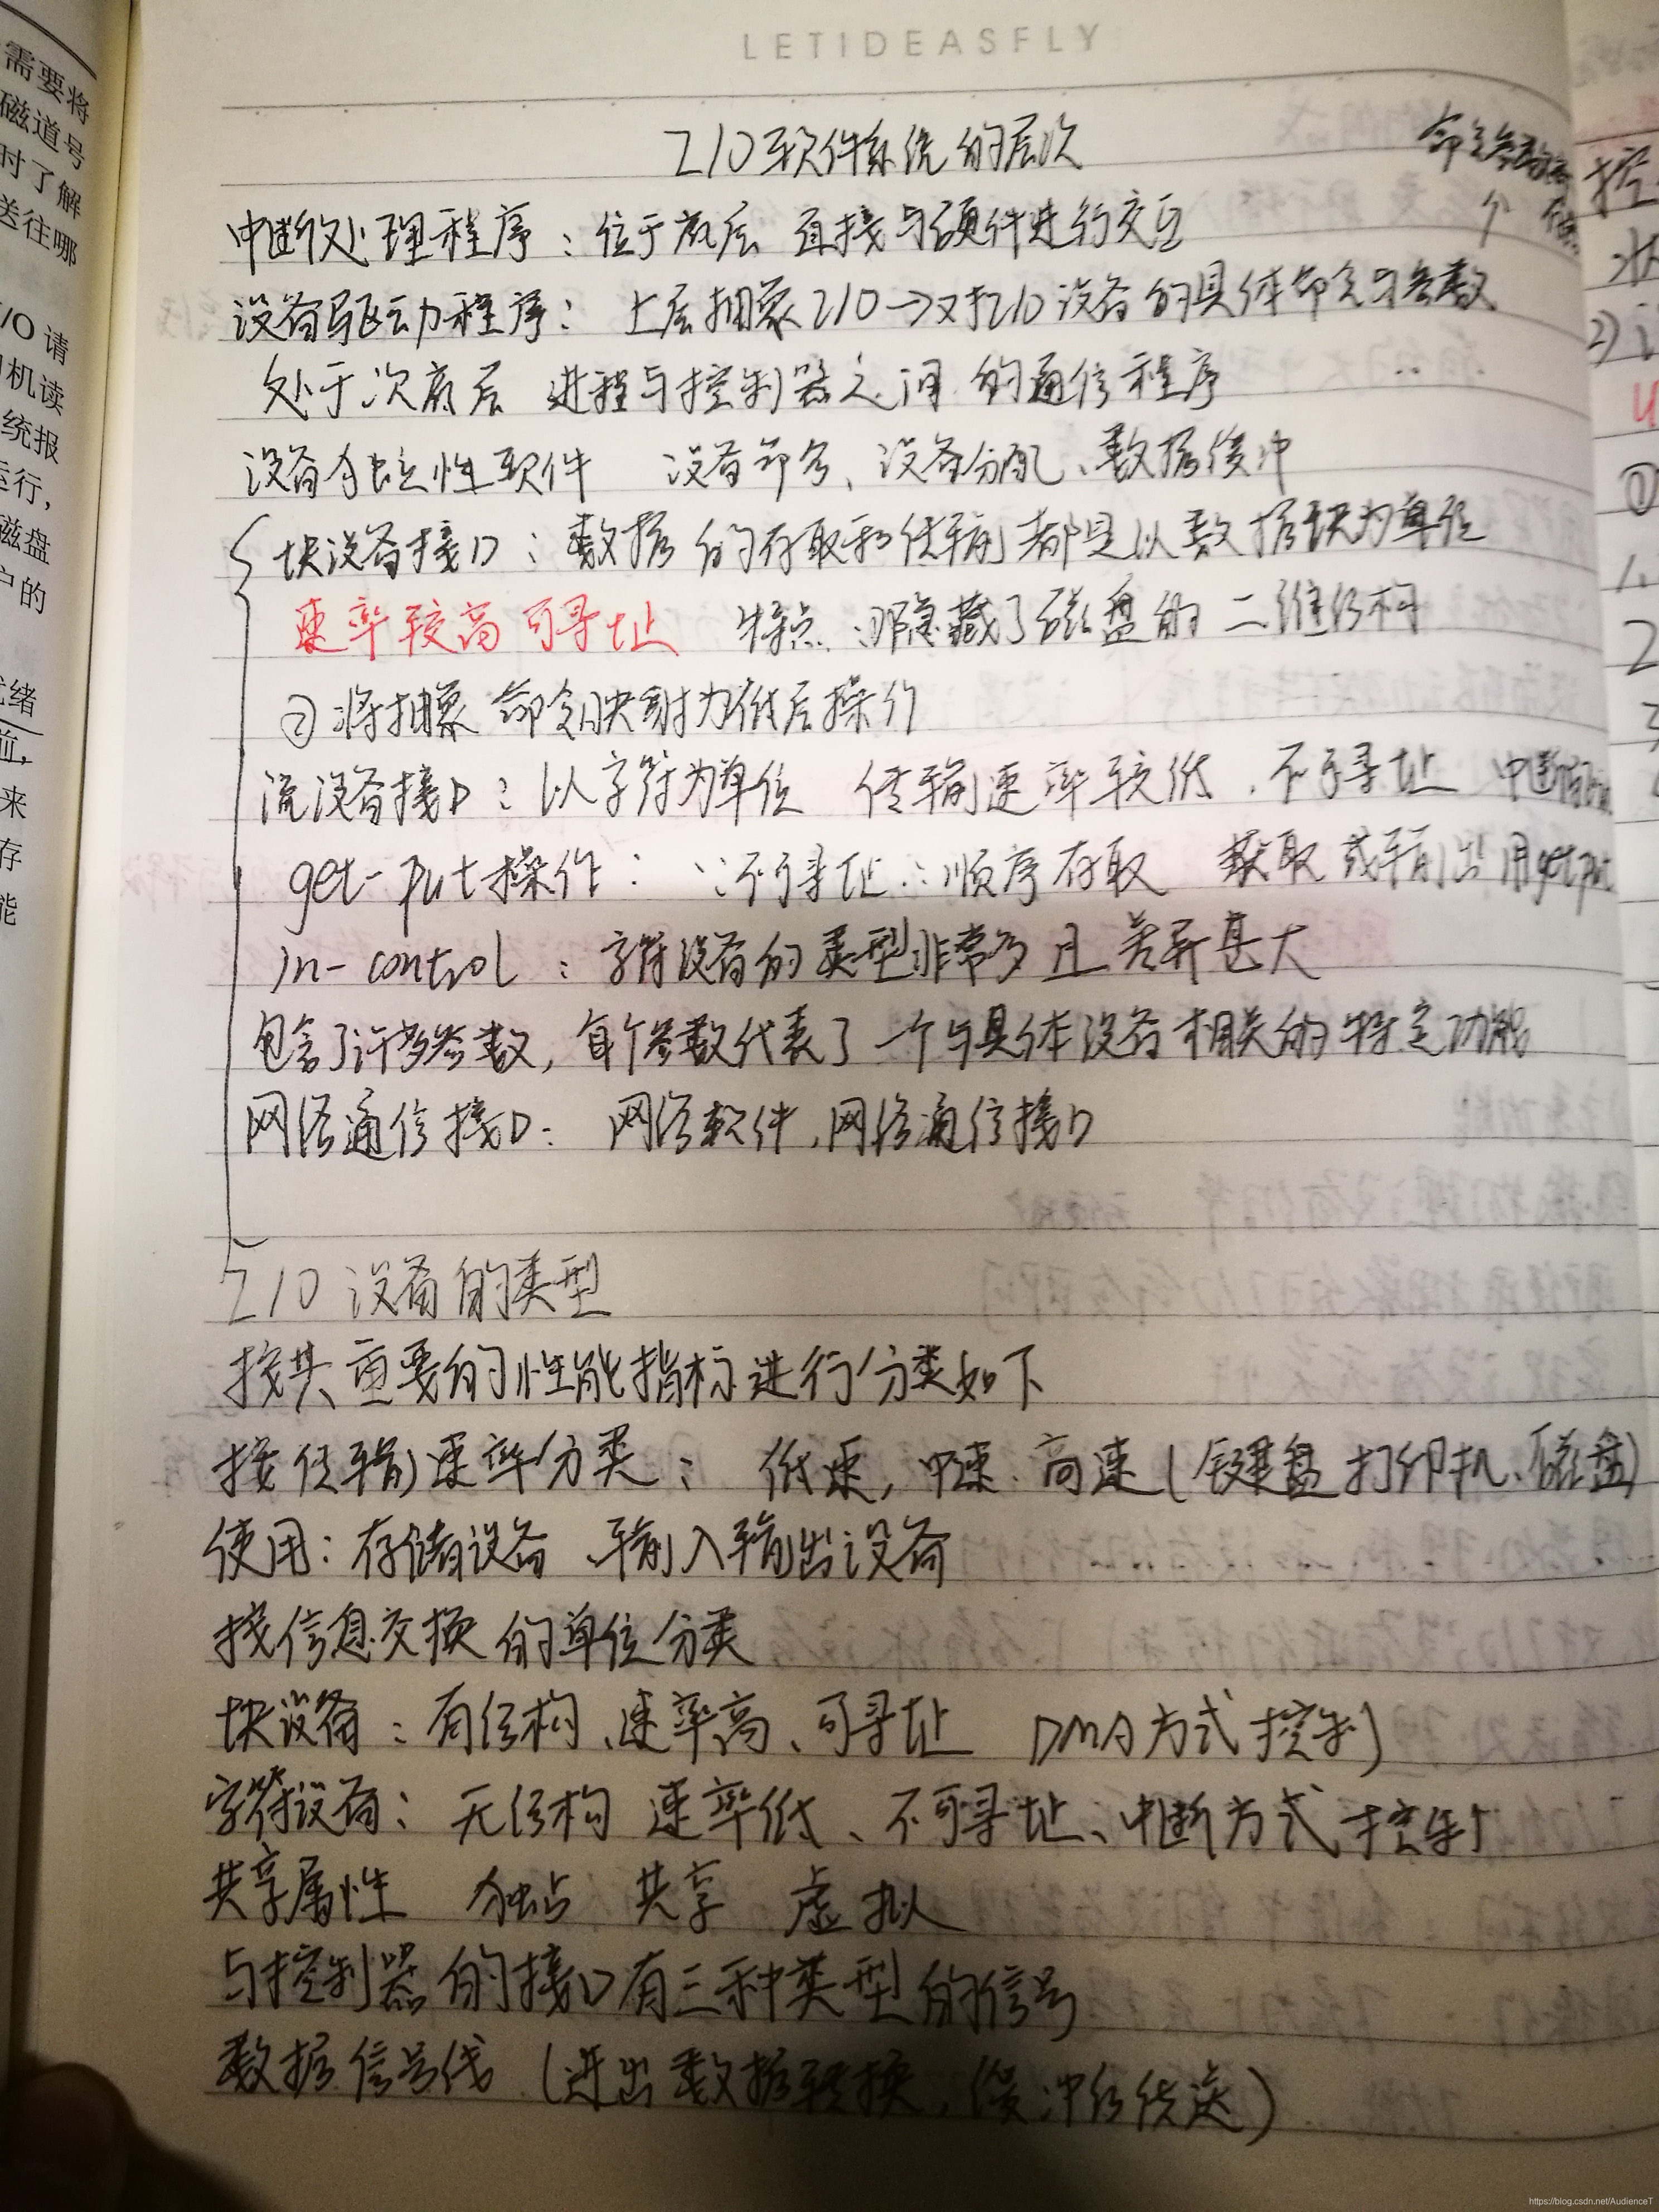 LETIDEASFLY
I/O软件系统的层次
中断处理程序：位于底层 直接与硬件进行交互
设备驱动程序：上层抽象I/O→对I/O设备的具体命令与参数
处于次底层 进程与控制器之间的通信程序
设备独立性软件 设备命名、设备分配、数据缓冲
块设备接口：数据的存取和传输都是以数据块为单位
速率较高 可寻址 特点：①隐藏了磁盘的二维结构
②将抽象命令映射为低层操作
流设备接口：以字符为单位 传输速率较低、不可寻址 中断
get-put操作：∵不可寻址∴顺序存取 获取或输出用get put
in-control：字符设备的类型非常多且差异甚大
包含了许多参数，每个参数代表了一个与具体设备相关的特定功能
网络通信接口：网络软件、网络通信接口
I/O设备的类型
按其重要的性能指标进行分类如下
按传输速率分类：低速，中速、高速(键盘 打印机、磁盘)
使用：存储设备、输入输出设备
按信息交换的单位分类
块设备：有结构、速率高、可寻址 DMA方式控制
字符设备：无结构 速率低、不可寻址、中断方式控制
共享属性 独占 共享 虚拟
与控制器的接口有三种类型的信号
数据信号线（进出数据转换，缓冲后传送）
需要将
磁道号
时了解
送往哪
I/O请
机读
统报
运行，
磁盘
户的
就绪
来
存
能
控
状
2)
①
1.
2
https://blog.csdn.net/AudienceT